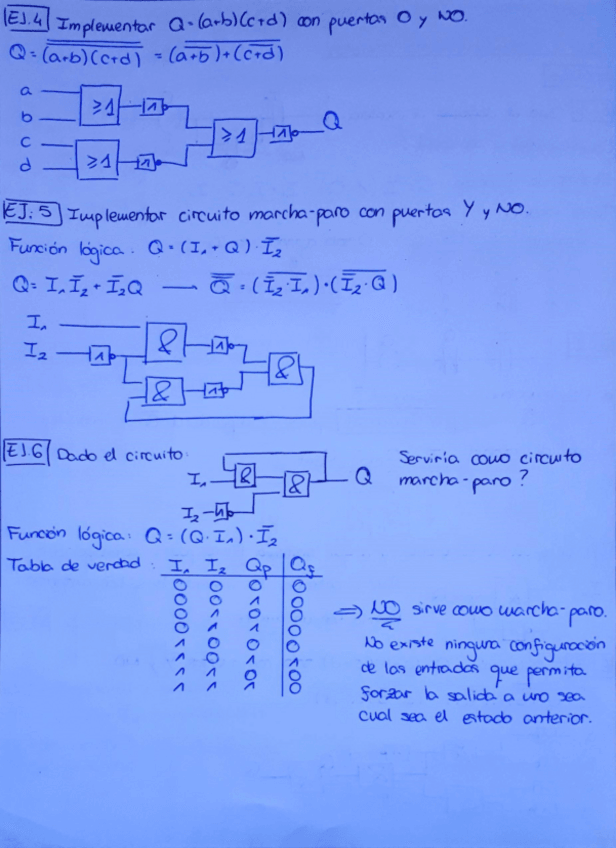 EJ.4 Implementar Q=(a+b)(c+d) con puertas O y NO.
Q = \overline{\overline{(a+b)(c+d)}} = \overline{\overline{(a+b)}+\overline{(c+d)}}
a
b
c
d
≥1
1
≥1
1
≥1
1
Q
EJ.5 Implementar circuito marcha-paro con puertas Y y NO.
Función lógica. Q=(I₁+Q)·Ī₂
Q= I₁Ī₂+Ī₂Q → \overline{\overline{Q}} = (\overline{Ī₂·I₁})·(\overline{Ī₂·Q})
I₁
I₂
1
&
1
&
1
&
EJ.6 Dado el circuito:
I₁
&
&
Q
I₂
1
Serviría como circuito
marcha-paro?
Función lógica: Q=(Q·I₁)·Ī₂
Tabla de verdad: I₁ I₂ Qp Qf
0 0 0 0
0 0 1 0
0 1 0 0
0 1 1 0
1 0 0 0
1 0 1 1
1 1 0 0
1 1 1 0
⇒ NO sirve como marcha-paro.
No existe ninguna configuración
de las entradas que permita
forzar la salida a uno sea
cual sea el estado anterior.